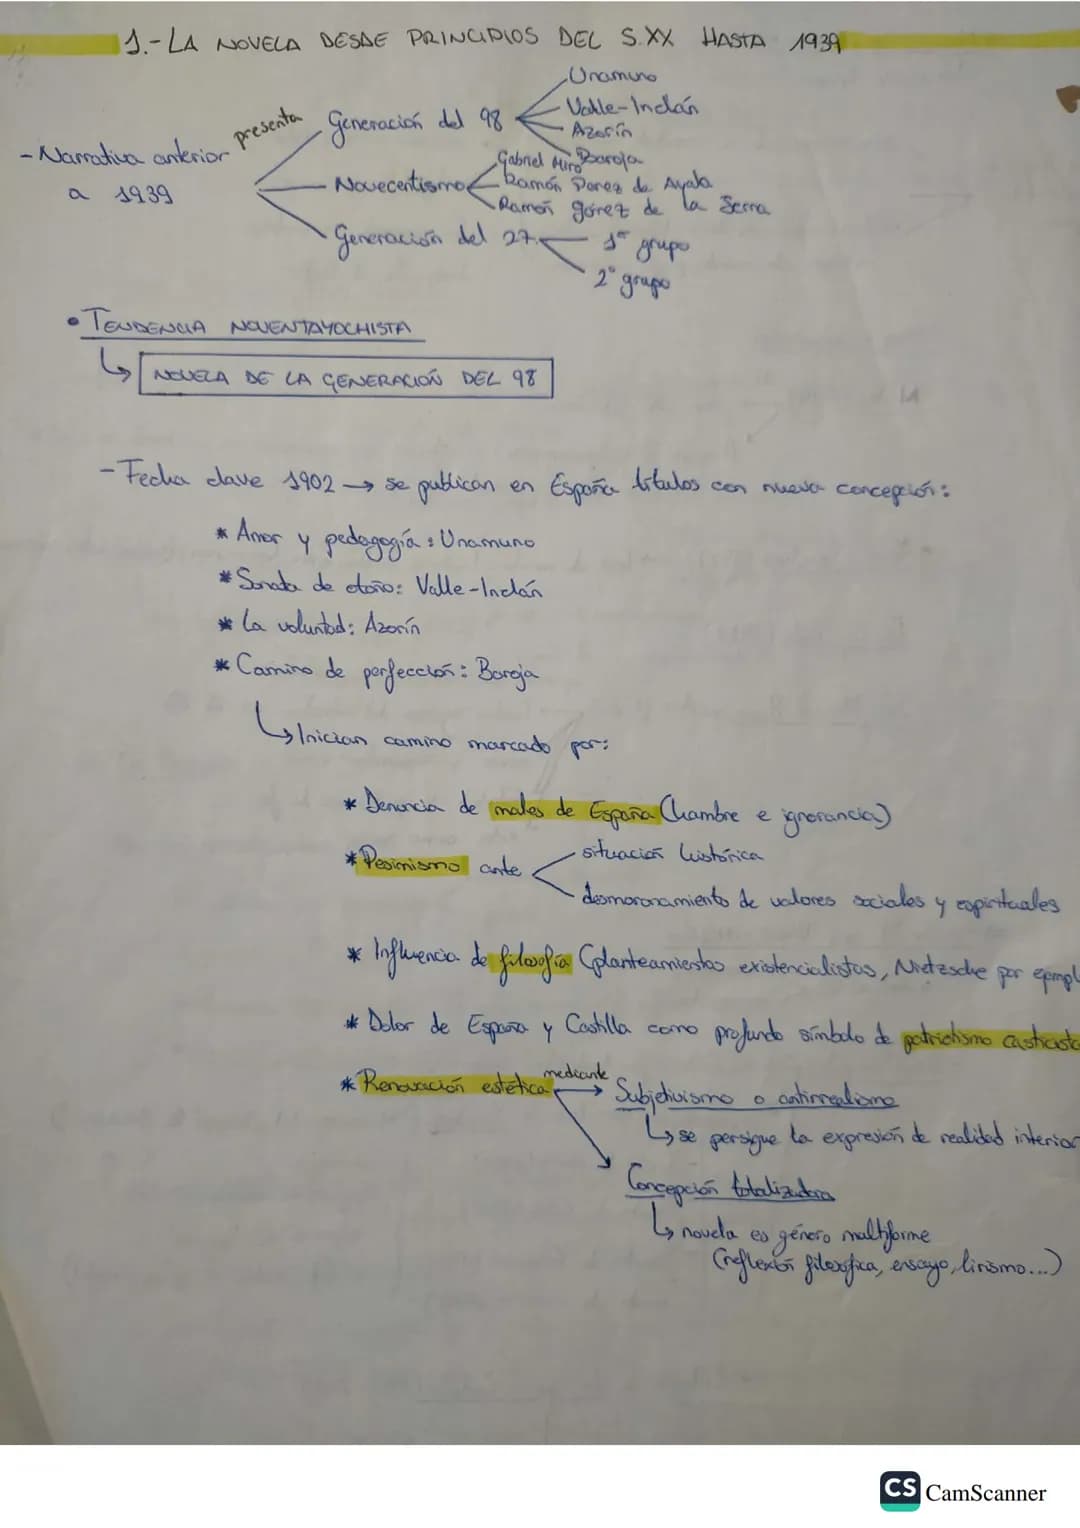 1.- LA NOVELA DESDE PRINCIPIOS DEL S.XX HASTA 1939
- Narrativa anterior a 1939
presenta
Generación del 98
Unamuno
Valle-Inclán
Azorín
Baroja
Novecentismo
Gabriel Miró
Ramón Perez de Ayala
Ramón gómez de la Serna
Generación del 27
1er grupo
2º grupo
• TENDENCIA NOVENTAYOCHISTA
↳ NOVELA DE LA GENERACIÓN DEL 98
- Fecha clave 1902 → se publican en España títulos con nueva concepción:
* Amor y pedagogía: Unamuno
* Sonata de otoño: Valle-Inclán
* La voluntad: Azorín
* Camino de perfección: Baroja
↳ Inician camino marcado por:
* Denuncia de males de España (hambre e ignorancia)
* Pesimismo ante
situación histórica
desmoronamiento de valores sociales y espirituales
* Influencia de filosofía (planteamientos existencialistas, Nietzsche por ejempl
* Dolor de España y Castilla como profundo símbolo de patriotismo casticista
* Renovación estética
mediante
→ Subjetivismo o antirrealismo
↳ se persigue la expresión de realidad interior
Concepción totalizadora
↳ novela es género multiforme
(reflexión filosófica, ensayo, lirismo...)
CS CamScanner